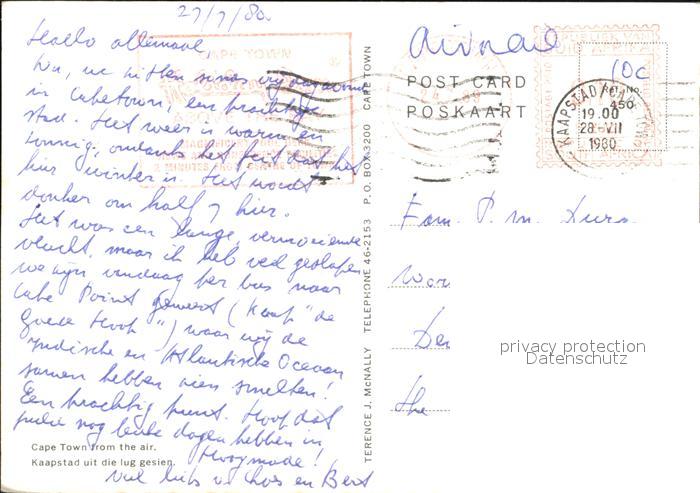 27/7/80
Hallo allemaal,
We zitten vrijdagavond
in Cape Town, een prachtige
stad. Het weer is warm en
zonnig, ondanks het feit dat het
hier winter is. Het wordt
donker om half 7 hier.
Het was een lange, vermoeiende
vlucht, maar ik heb veel geslapen
we zijn vandaag per bus naar
Cape Point geweest (Kaap "de
Goede Hoop") waar wij de
Indische en Atlantische Oceaan
samen hebben zien smelten!
Een prachtig punt. Hoop dat
jullie nog leuke dagen hebben in
Hoogmade!
Veel liefs v. en Bert
Cape Town from the air.
Kaapstad uit die lug gesien.
TERENCE J. McNALLY TELEPHONE 46-2153 P.O. BOX 3200 CAPE TOWN
CAPE TOWN
Airmail
POST CARD
POSKAART
10c
450
KAAPSTAD
19.00
28-VII
1980
Fam. P. m.
privacy protection
Datenschutz